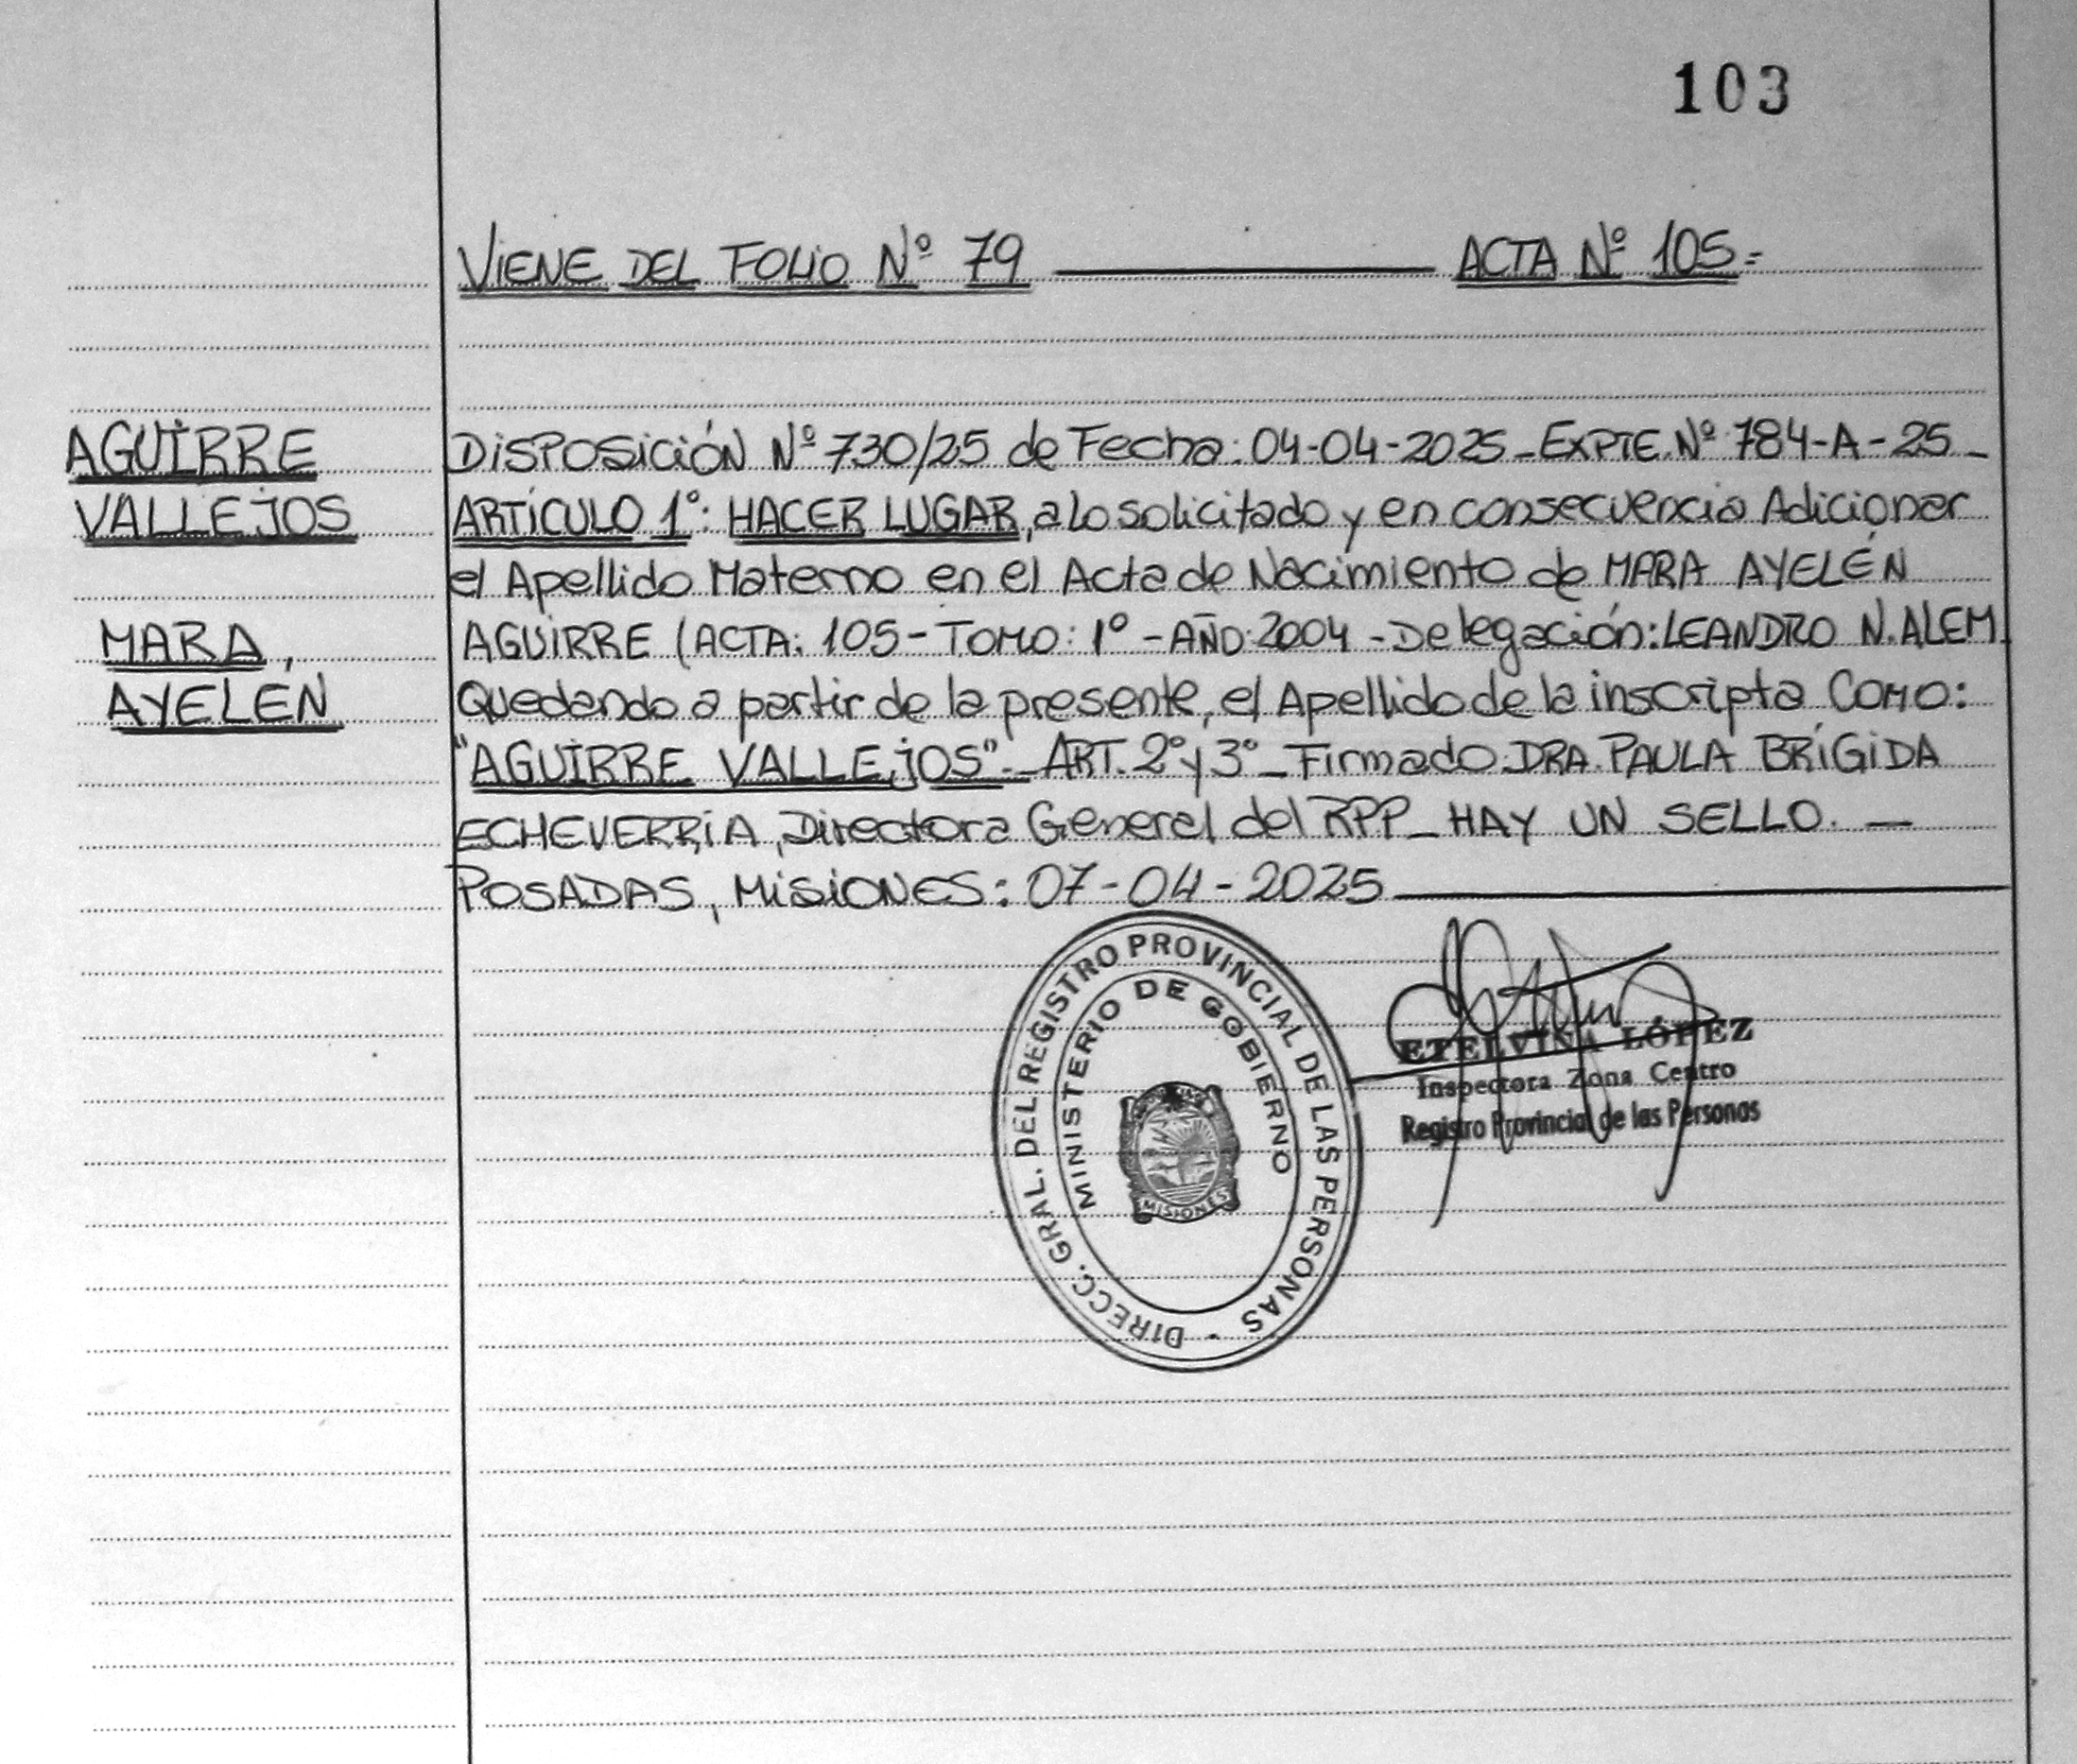 103
VIENE DEL FOLIO Nº 79 ACTA Nº 105=
AGUIRRE
VALLEJOS
MARA,
AYELEN
DISPOSICIÓN Nº 730/25 de Fecha: 04-04-2025 - EXPTE. Nº 784-A-25 -
ARTÍCULO 1º: HACER LUGAR, a lo solicitado y en consecuencia Adicionar
el Apellido Materno en el Acta de Nacimiento de MARA AYELÉN
AGUIRRE (ACTA: 105 - TOMO: 1º - AÑO: 2004 - Delegación: LEANDRO N. ALEM.
Quedando a partir de la presente, el Apellido de la inscripta COMO:
"AGUIRRE VALLEJOS" - ART. 2º y 3º - Firmado DRA. PAULA BRÍGIDA
ECHEVERRIA, Directora General del RPP - HAY UN SELLO. -
POSADAS, MISIONES: 07-04-2025
DIRECC. GRAL. DEL REGISTRO PROVINCIAL DE LAS PERSONAS
MINISTERIO DE GOBIERNO
MISIONES
ETELVINA LÓPEZ
Inspectora Zona Centro
Registro Provincial de las Personas